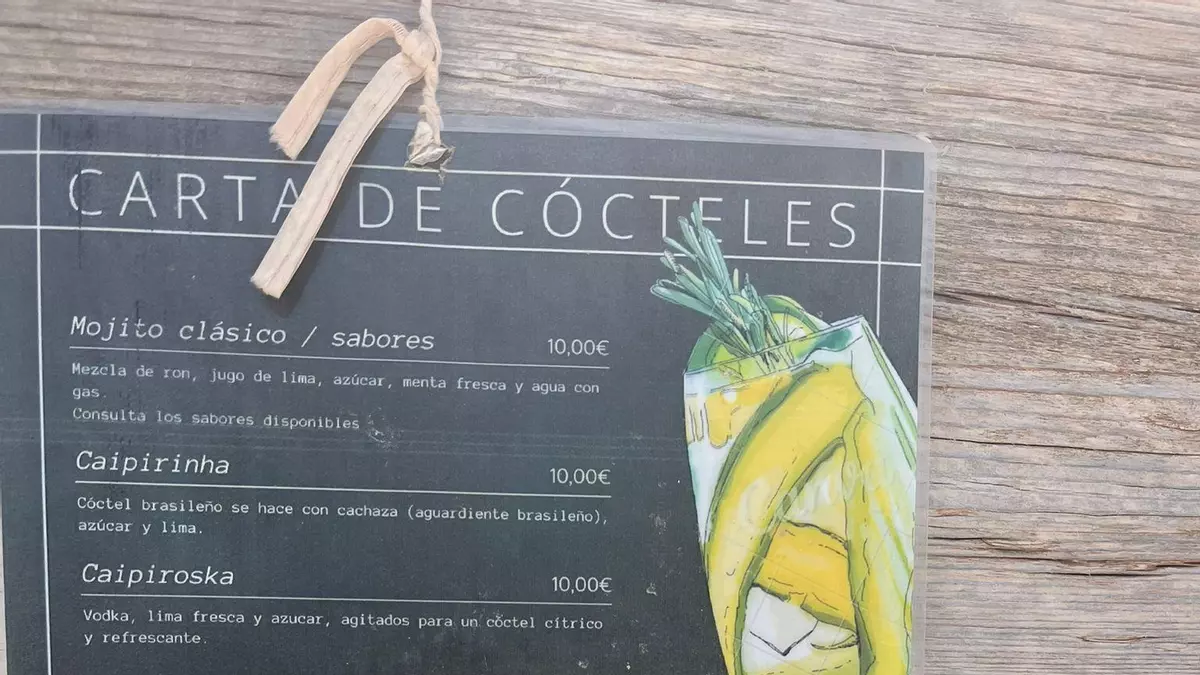 CARTA DE CÓCTELES
Mojito clásico / sabores 10,00€
Mezcla de ron, jugo de lima, azúcar, menta fresca y agua con
gas.
Consulta los sabores disponibles
Caipirinha 10,00€
Cóctel brasileño se hace con cachaza (aguardiente brasileño),
azúcar y lima.
Caipiroska 10,00€
Vodka, lima fresca y azucar, agitados para un cóctel cítrico
y refrescante.